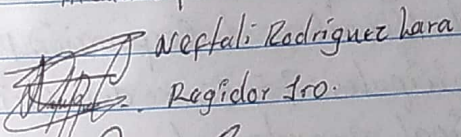 Neftali Rodriguez Lara
Regidor 1ro.